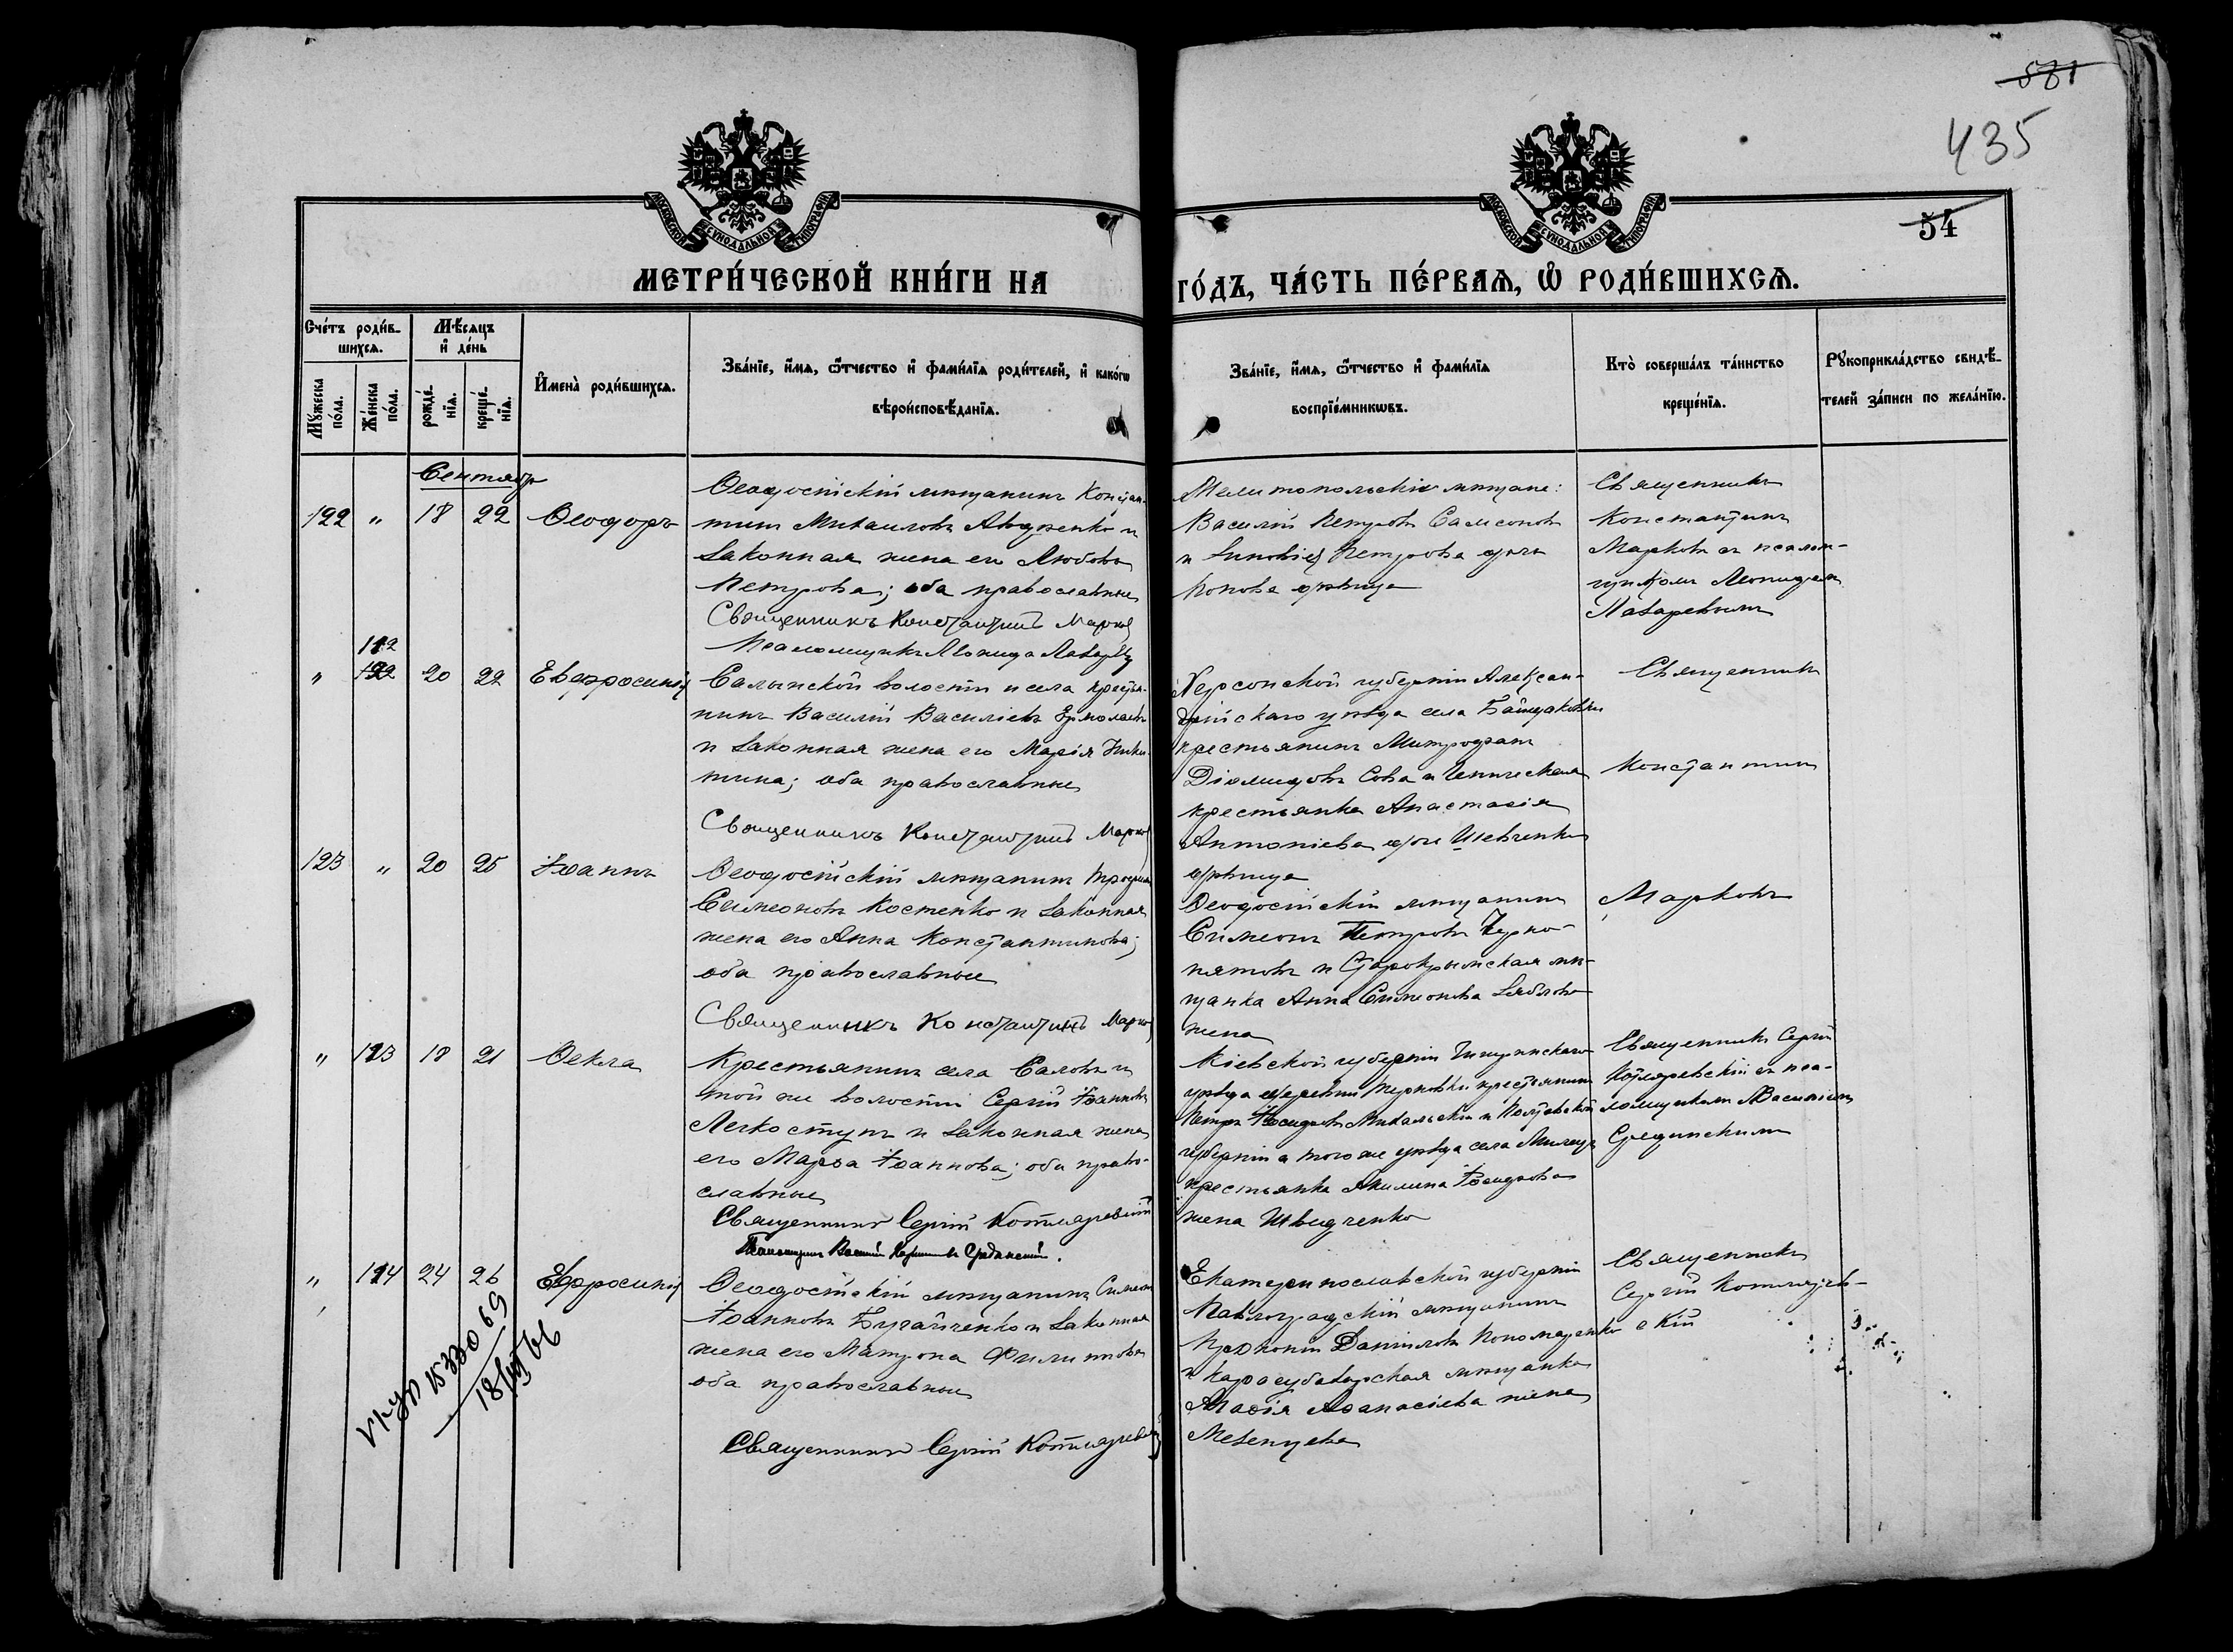 581
435
54
МОСКОВСКОЙ СѴНОДАЛЬНОЙ ТИПОГРАФІИ
МОСКОВСКОЙ СѴНОДАЛЬНОЙ ТИПОГРАФІИ
МЕТРИ́ЧЕСКОЙ КНИ́ГИ НА
ГО́ДЪ, ЧА́СТЬ ПЕ́РВАѦ, Ѽ РОДИ́ВШИХСѦ.
Сче́тъ роди́в-
шихсѧ.
Мꙋжеска по́ла.
Же́нска по́ла.
Мѣ́сѧцъ и҆ де́нь
рожде́-нїѧ.
креще́-нїѧ.
И҆мена̀ роди́вшихсѧ.
Зва́нїе, и҆́мѧ, ѻ҆́тчество и҆ фами́лїѧ роди́телей, и҆ како́гѡ
вѣроисповѣ́данїѧ.
Зва́нїе, и҆́мѧ, ѻ҆́тчество и҆ фами́лїѧ
воспрїе́мникѡвъ.
Кто̀ соверша́лъ та́инство
креще́нїѧ.
Рꙋкоприкла́дство свидѣ́-
телей за́писи по жела́нїю.
Сентябр
122 " 18 22 Ѳеодоръ
Ѳеодосійскій мѣщанинъ Констан-
тинъ Михаиловъ Авдѣенко и
законная жена его Любовь
Петрова; оба православные
Священникъ Константинъ Марков
Псаломщикъ Леонидъ Лазарев
Мелитопольскіе мѣщане:
Василій Петровъ Самсоновъ
и Зиновія Петрова дочь
Попова дѣвица
Священникъ
Константинъ
Марковъ съ псалом-
щикомъ Леонидомъ
Лазаревымъ
" 112 122 20 22 Евфросинія
Салынской волости и села крестья-
нинъ Василій Васильевъ Ермолаевъ
и законная жена его Марія Ники-
тина; оба православные
Священникъ Константинъ Марков
Херсонской губерніи Алексан-
дрійскаго уѣзда села Байдаковки
крестьянинъ Митрофанъ
Діомидовъ Сова и Геническая
крестьянка Анастасія
Антоніева дочь Шевченко
дѣвица
Священникъ
Константинъ
Марковъ
123 " 20 25 Іоаннъ
Ѳеодосійскій мѣщанинъ Трофимъ
Симеоновъ Костенко и законная
жена его Анна Константинова;
оба православные
Священникъ Константинъ Марков
Ѳеодосійскій мѣщанинъ
Симеонъ Петровъ Черно-
пятовъ и Старокрымская мѣ-
щанка Анна Симеонова
жена
" 113 18 21 Ѳекла
Крестьянинъ села Саловъ и
той же волости Сергій Іоанновъ
Легкоступъ и законная жена
его Марѳа Іоаннова; оба право-
славные
Священникъ Сергій Котляревскій
Псаломщикъ Василій Срединскій.
Кіевской губерніи Чигиринскаго
уѣзда деревни крестьянинъ
Петръ Михальскій и Полтавской
губерніи и того же уѣзда села
крестьянка Акилина
жена Швидченко
Священникъ Сергій
Котляревскій съ пса-
ломщикомъ Василіемъ
Срединскимъ
" 114 24 26 Евфросинія
Ѳеодосійскій мѣщанинъ Симеонъ
Іоанновъ Бугайченко и законная
жена его Матрона Филиппова
оба православные
Священникъ Сергій Котляревскій
Екатеринославской губерніи
Павлоградскій мѣщанинъ
Прокопій Даніиловъ Пономаренко
и Карасубазарская мѣщанка
Марія Аѳанасіева жена
Мезенцева
Священникъ
Сергій Котлярев-
скій
1533069
18/VII 66